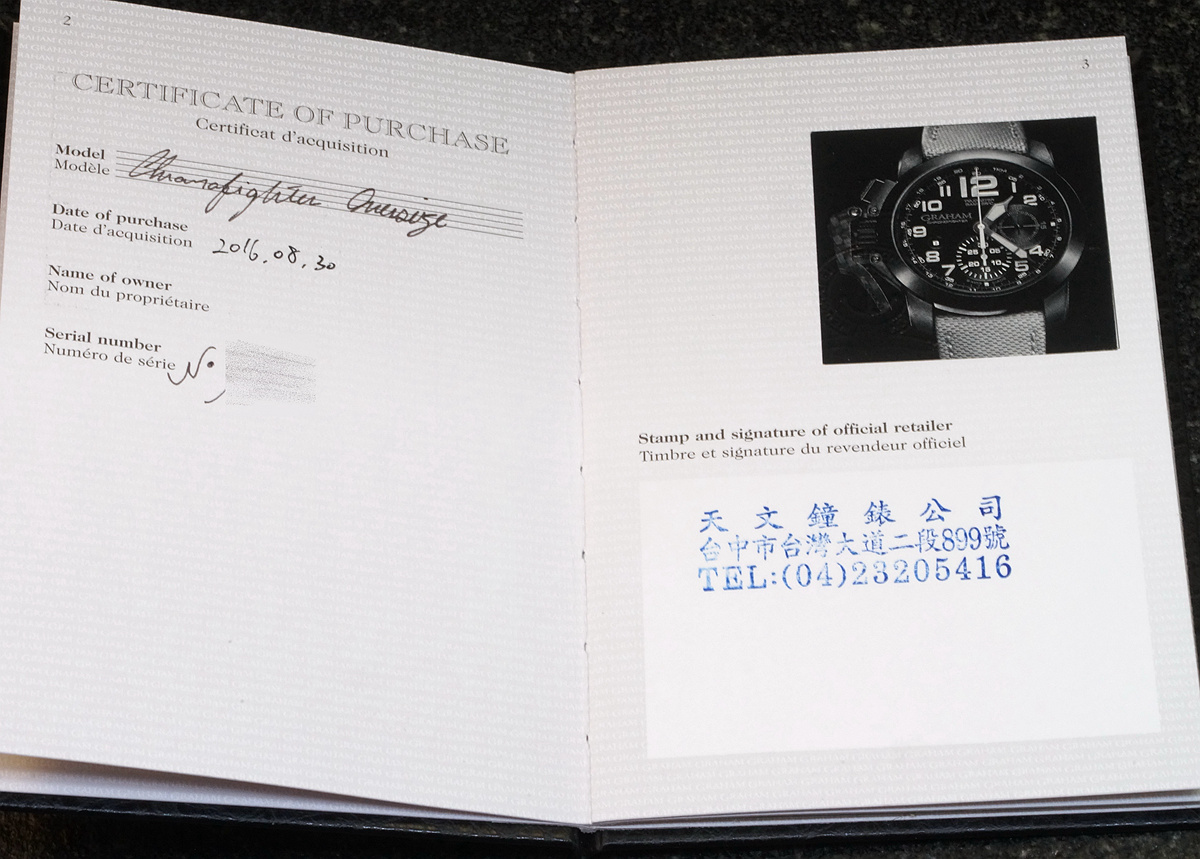 2
CERTIFICATE OF PURCHASE
Certificat d'acquisition
Model
Modèle
Chronofighter Oversize
Date of purchase
Date d'acquisition
2016.08.30
Name of owner
Nom du propriétaire
Serial number
Numéro de série
N°
3
12
11
1
10
2
GRAHAM
9
8
4
7
5
Stamp and signature of official retailer
Timbre et signature du revendeur officiel
天文鐘錶公司
台中市台灣大道二段899號
TEL:(04)23205416